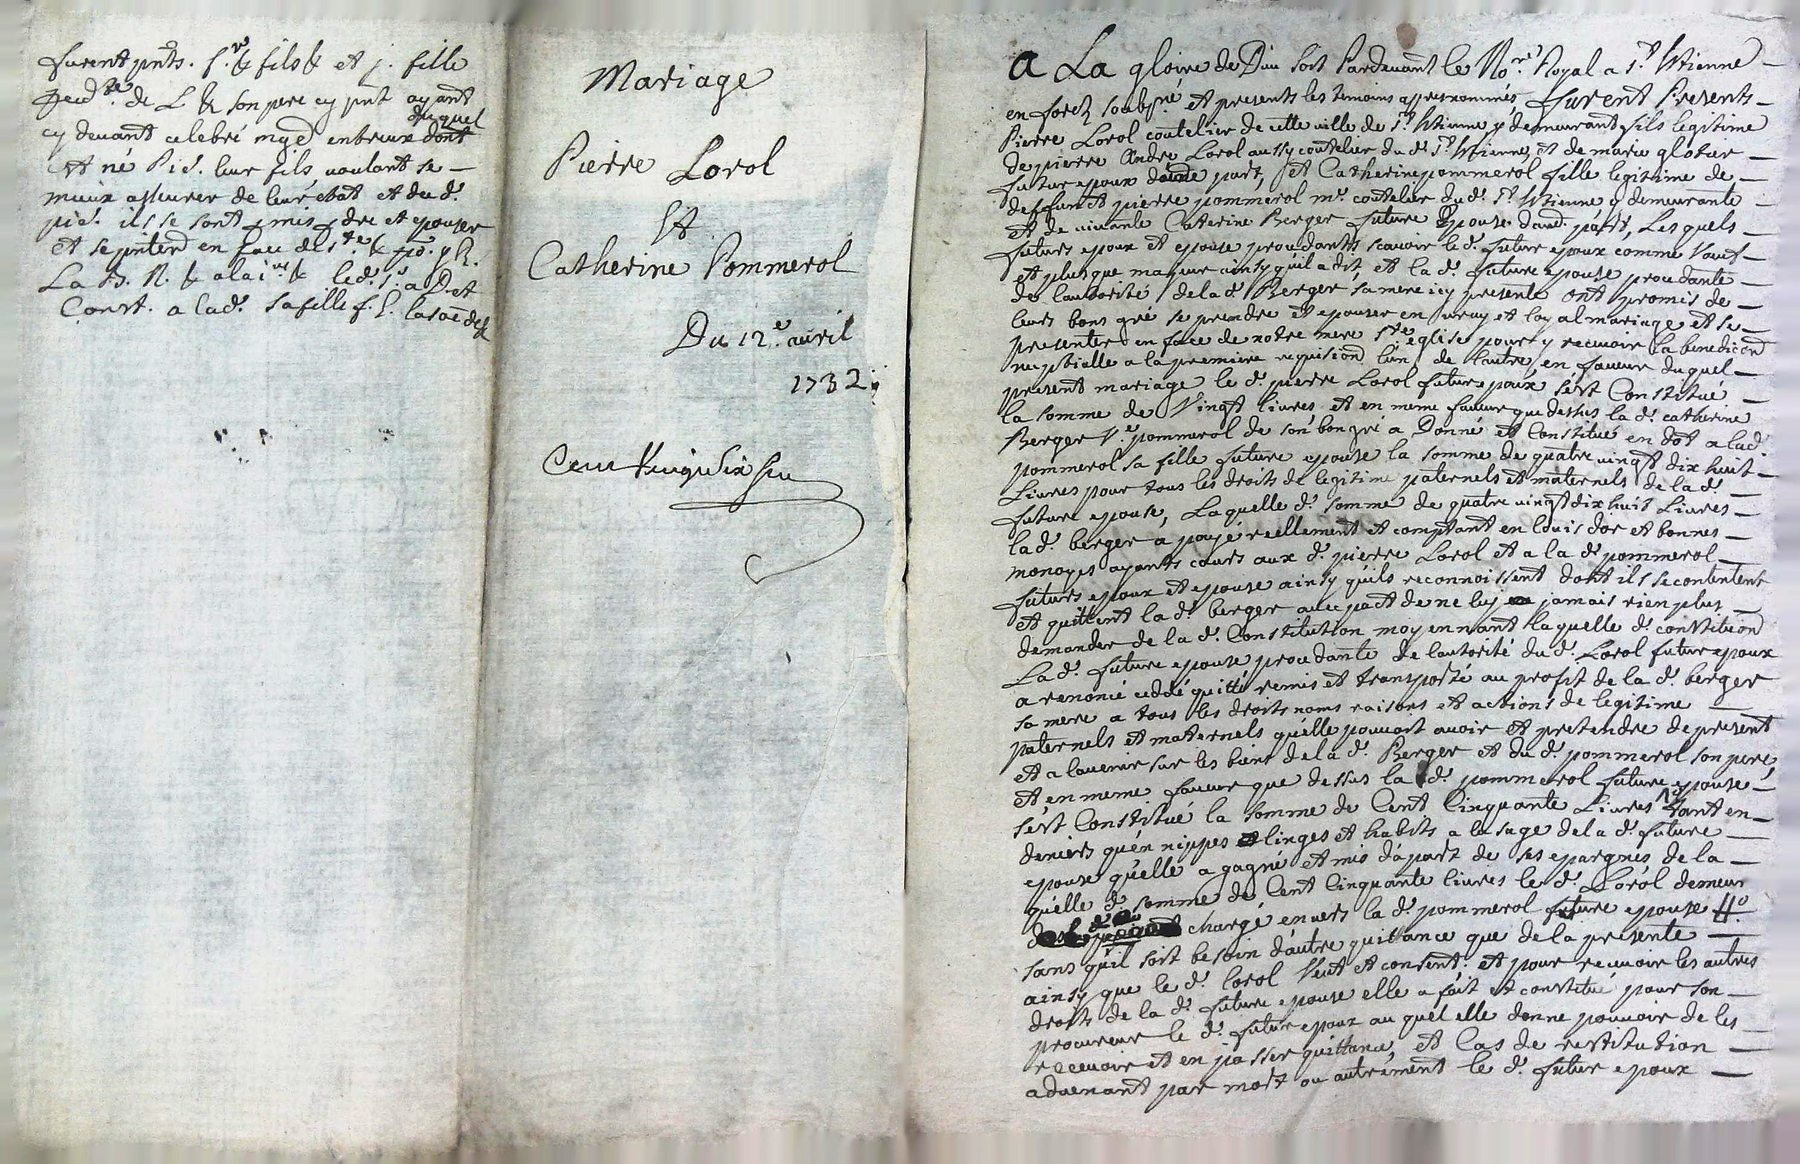 furent pnts. Sr. & fils & et j. fille
de L & son pere cy pnt ayant
duquel
cy devant celebré mge entreux dont
est né leur fils voulant se
mieux asseurer de leur etat et du d.
ils se sont pmis pdre et epouser
et se pnter en face de Ste. &
La B. N. & a la 1re & led. Sr. a D. et
Const. a lad. sa fille f. E. la soe de
Mariage
Pierre Lorol
Et
Catherine Pommerol
Du 12e. avril
1732
A La gloire de Dieu soit Pardevant le Nore. Royal a St. Etienne
en forez soubzné et presents les temoins apresnommés, furent Presents
Pierre Lorol coutelier de cette ville de St. Etienne y demeurant fils legitime
de pierre André Lorol aussy coutelier du d. St. Etienne, et de marie
futur epoux d'une part, Et Catherine pommerol fille legitime de
deffunct pierre pommerol mre. coutelier du d. St. Etienne y demeurante
et de vivante Caterine Berger future Epouse dautre part, Lesquels
futurs epoux et epouse procedants scavoir le d. futur epoux comme Veuf
et plus que majeur ainsy quil a dit, et la d. future epouse procedante
de lautorité de la d. Berger sa mere icy presente ont promis de
leurs bons gré se prendre et epouser en vray et loyal mariage et se
presenter en face de notre mere Ste eglise pour y recevoir la benediction
nuptielle a la premiere requisiōn lun de lautre, en faveur duquel
present mariage le d. pierre Lorol futur epoux s'est Constitué
la somme de Vingt livres et en meme faveur que dessus la d. catherine
Berger Ve. pommerol de son bon gré a Donné et Constitué en dot a lad.
pommerol sa fille future epouse la somme de quatre vingt dix huit
Livres pour tous les droits de legitime paternels et maternels de la d.
future epouse, Laquelle d. somme de quatre vingt dix huit Livres
la d. berger a payé reellement et comptant en louis dor et bonnes
monoyes ayants cours aux d. pierre Lorol et a la d. pommerol
futurs epoux et epouse ainsy quils reconnoissent dont ils se contentent
et quittent la d. berger avec pact de ne luy jamais rien plus
demander de la d. Constitution moyennant laquelle d. constitution
La d. future epouse procedante de lautorité du d. Lorol futur epoux
a renoncé ceddé quitté remis et transporté au profit de la d. berger
sa mere a tous les droits noms raisons et actions de legitime
paternels et maternels quelle pouvoit avoir et pretendre de present
et a lavenir sur les biens de la d. Berger et du d. pommerol son pere,
et en meme faveur que dessus la d. pommerol future epouse
s'est Constitué la somme de Cent Cinquante Livres tant en
deniers qu'en nippes linges et habits a lusage de la d. future
epouse quelle a gagné et mis dapart de ses epargnes de la
quelle d. somme de Cent Cinquante livres le d. Lorol demeur
chargé envers la d. pommerol future epouse
sans quil soit besoin dautre quittance que de la presente
ainsy que le d. lorol Veut et consent: et pour recevoir les autres
droits de la d. future epouse elle a fait et constitué pour son
procureur le d. futur epoux au quel elle donne pouvoir de les
recevoir et en passer quittance, et Cas de restitution
advenant par mort ou autrement le d. futur epoux